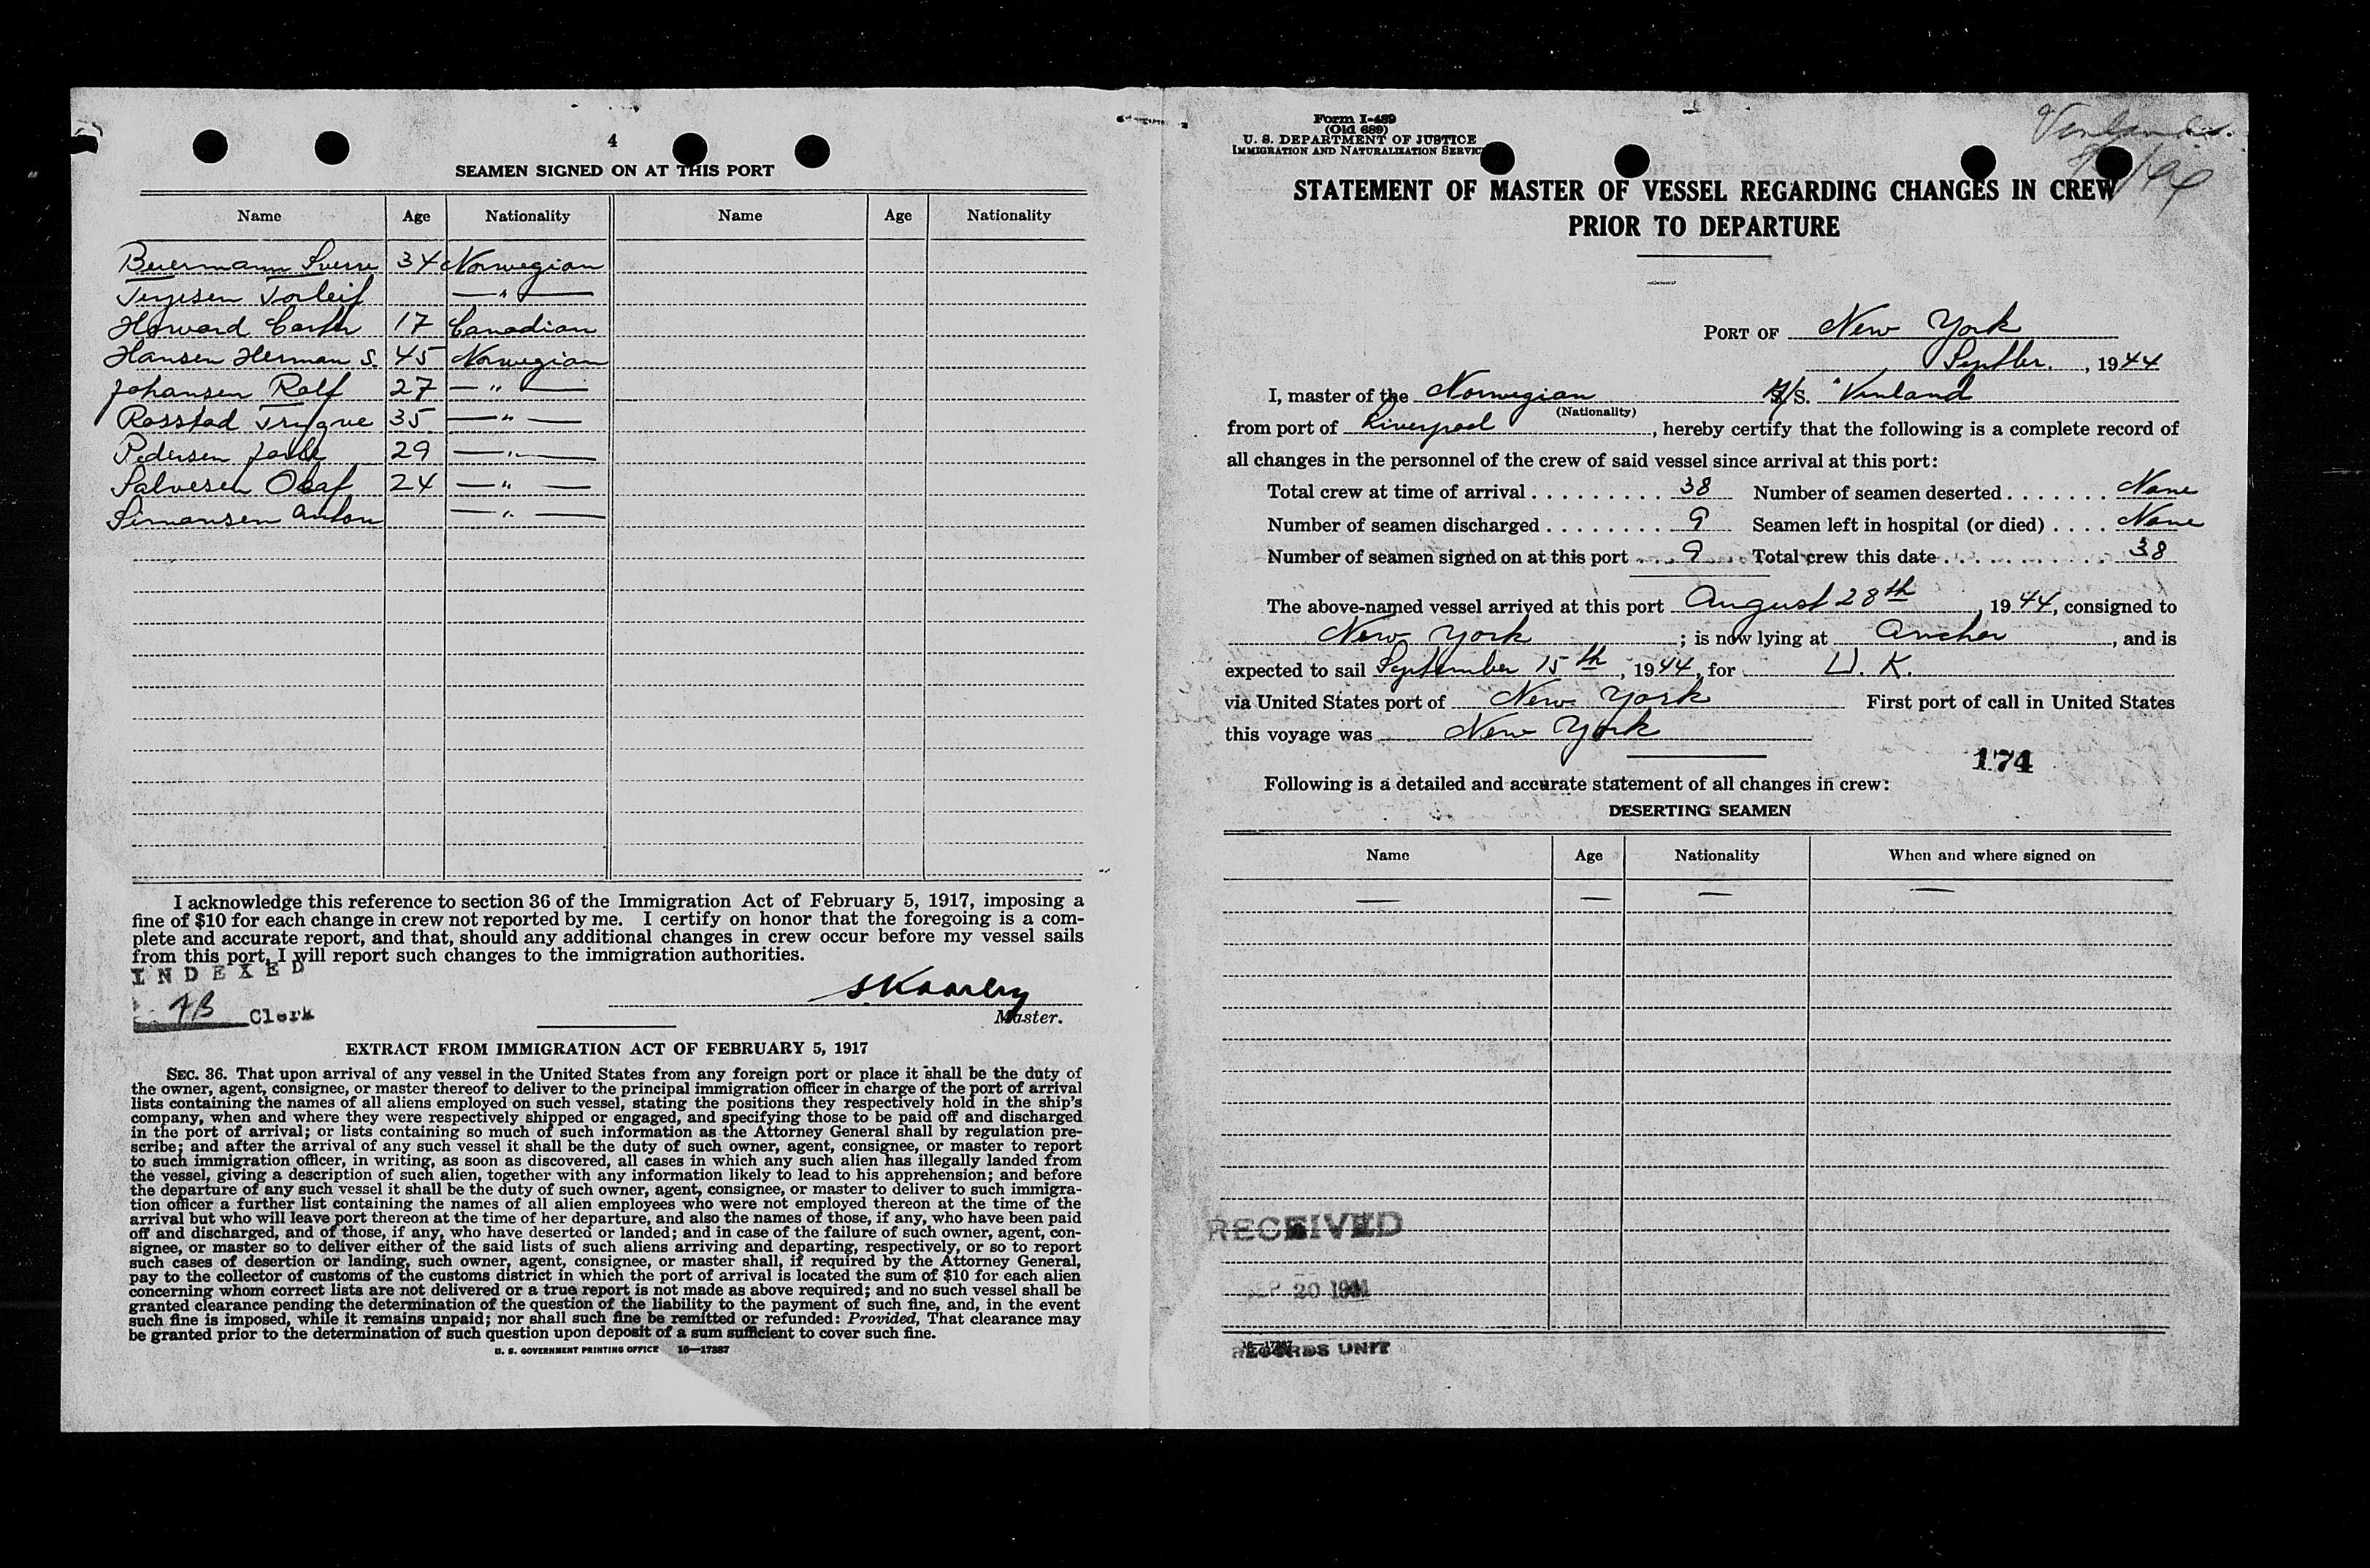 4
SEAMEN SIGNED ON AT THIS PORT
Name Age Nationality Name Age Nationality
Beuermann Sverre 34 Norwegian
Torleif — " —
Howard 17 Canadian
Hansen Herman S. 45 Norwegian
Johansen Rolf 27 — " —
Rosstad Trygve 35 — " —
Pedersen 29 — " —
Salvesen Olaf 24 — " —
Simonsen Anton — " —
I acknowledge this reference to section 36 of the Immigration Act of February 5, 1917, imposing a
fine of $10 for each change in crew not reported by me. I certify on honor that the foregoing is a com-
plete and accurate report, and that, should any additional changes in crew occur before my vessel sails
from this port, I will report such changes to the immigration authorities.
INDEXED
Clerk
Master.
EXTRACT FROM IMMIGRATION ACT OF FEBRUARY 5, 1917
SEC. 36. That upon arrival of any vessel in the United States from any foreign port or place it shall be the duty of
the owner, agent, consignee, or master thereof to deliver to the principal immigration officer in charge of the port of arrival
lists containing the names of all aliens employed on such vessel, stating the positions they respectively hold in the ship's
company, when and where they were respectively shipped or engaged, and specifying those to be paid off and discharged
in the port of arrival; or lists containing so much of such information as the Attorney General shall by regulation pre-
scribe; and after the arrival of any such vessel it shall be the duty of such owner, agent, consignee, or master to report
to such immigration officer, in writing, as soon as discovered, all cases in which any such alien has illegally landed from
the vessel, giving a description of such alien, together with any information likely to lead to his apprehension; and before
the departure of any such vessel it shall be the duty of such owner, agent, consignee, or master to deliver to such immigra-
tion officer a further list containing the names of all alien employees who were not employed thereon at the time of the
arrival but who will leave port thereon at the time of her departure, and also the names of those, if any, who have been paid
off and discharged, and of those, if any, who have deserted or landed; and in case of the failure of such owner, agent, con-
signee, or master so to deliver either of the said lists of such aliens arriving and departing, respectively, or so to report
such cases of desertion or landing, such owner, agent, consignee, or master shall, if required by the Attorney General,
pay to the collector of customs of the customs district in which the port of arrival is located the sum of $10 for each alien
concerning whom correct lists are not delivered or a true report is not made as above required; and no such vessel shall be
granted clearance pending the determination of the question of the liability to the payment of such fine, and, in the event
such fine is imposed, while it remains unpaid; nor shall such fine be remitted or refunded: Provided, That clearance may
be granted prior to the determination of such question upon deposit of a sum sufficient to cover such fine.
U. S. GOVERNMENT PRINTING OFFICE 16—17887
Form I-489
(Old 689)
U. S. DEPARTMENT OF JUSTICE
IMMIGRATION AND NATURALIZATION SERVICE
STATEMENT OF MASTER OF VESSEL REGARDING CHANGES IN CREW
PRIOR TO DEPARTURE
PORT OF New York
Septbr. , 1944
I, master of the Norwegian M/S. "Vinland
(Nationality)
from port of Liverpool, hereby certify that the following is a complete record of
all changes in the personnel of the crew of said vessel since arrival at this port:
Total crew at time of arrival 38 Number of seamen deserted None
Number of seamen discharged 9 Seamen left in hospital (or died) None
Number of seamen signed on at this port 9 Total crew this date 38
The above-named vessel arrived at this port August 28th, 1944, consigned to
New York ; is now lying at Anchor, and is
expected to sail September 15th, 1944, for U. K.
via United States port of New York First port of call in United States
this voyage was New York
174
Following is a detailed and accurate statement of all changes in crew:
DESERTING SEAMEN
Name Age Nationality When and where signed on
— — — —
RECEIVED
SEP 20 1944
RECORDS UNIT